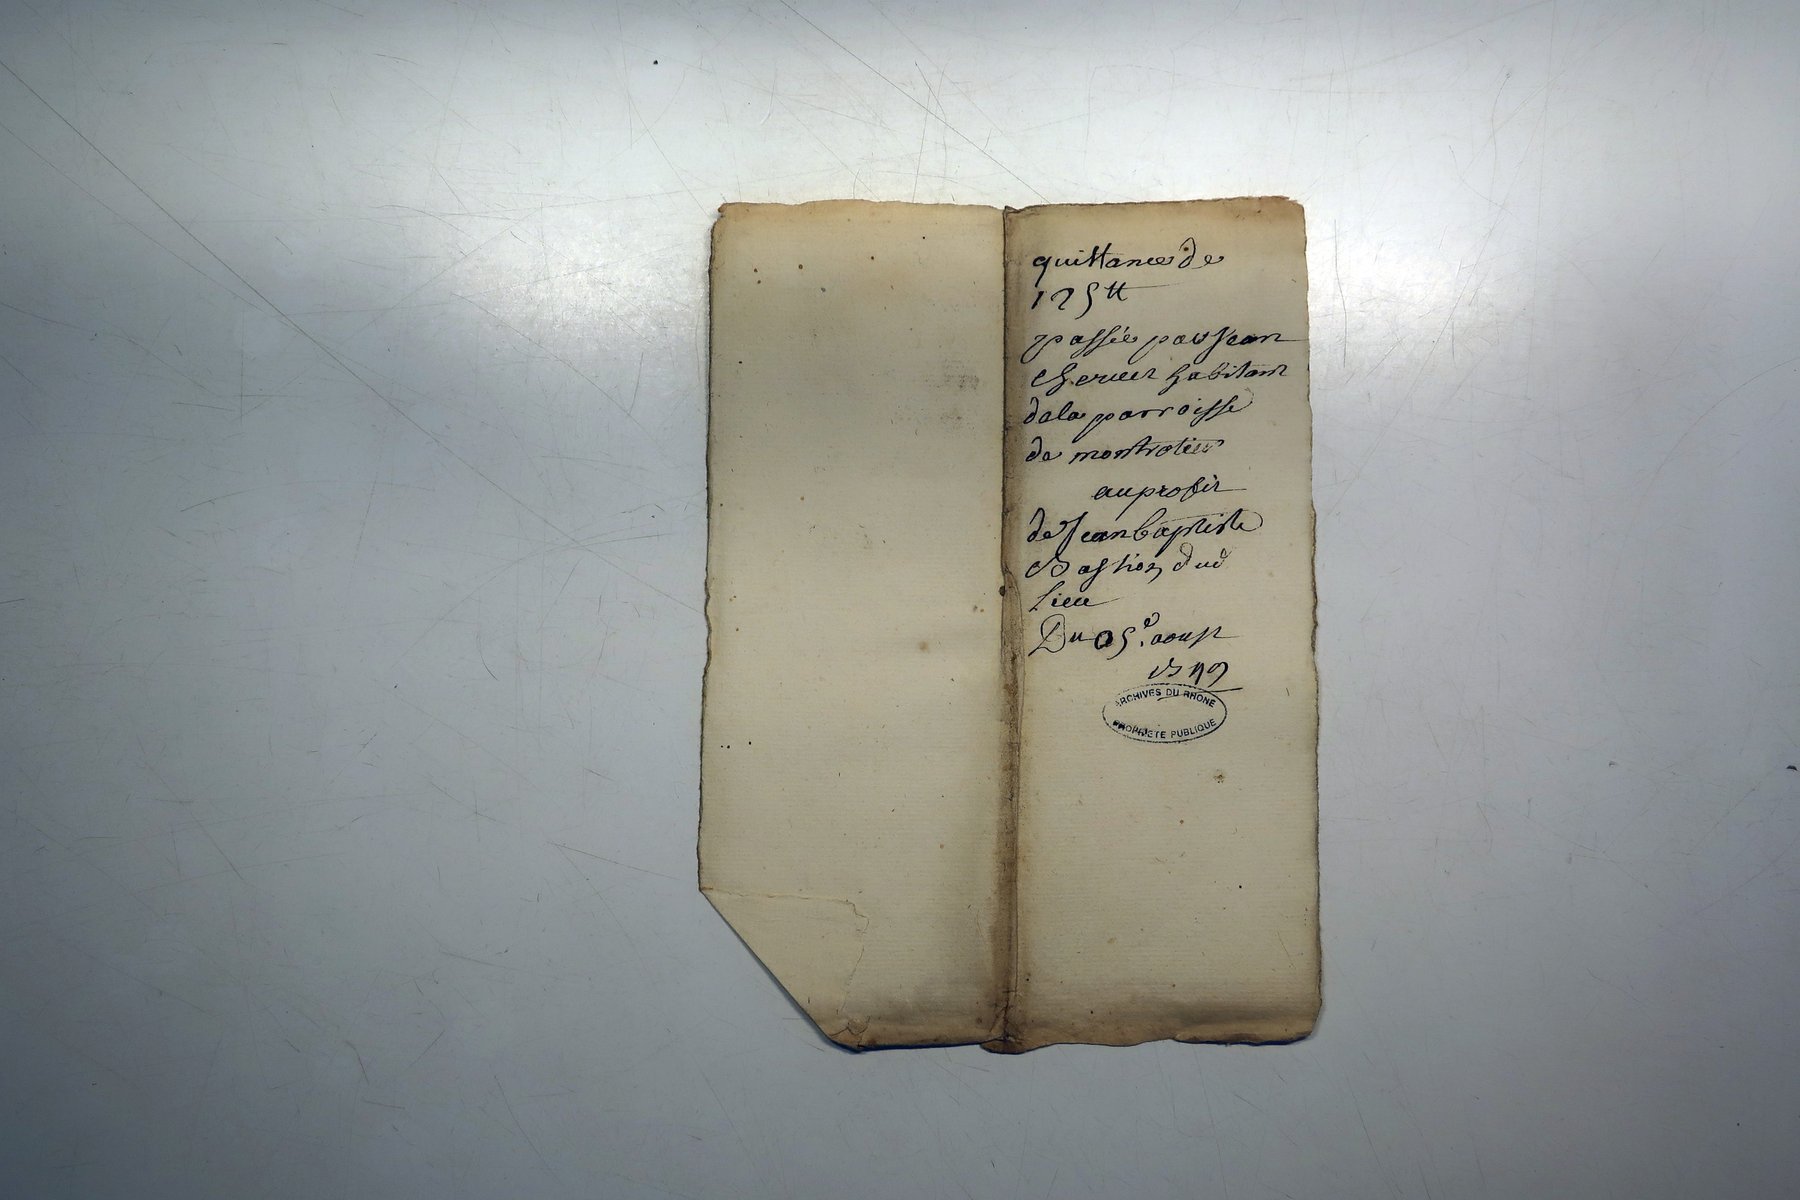 quittance de
125 tt
passée par Jean
habitant
de la parroisse
de montrotier
au profit
de Jean baptiste
Bastion dud
lieu
Du 05e. aoust
ARCHIVES DU RHONE
PROPRIETE PUBLIQUE